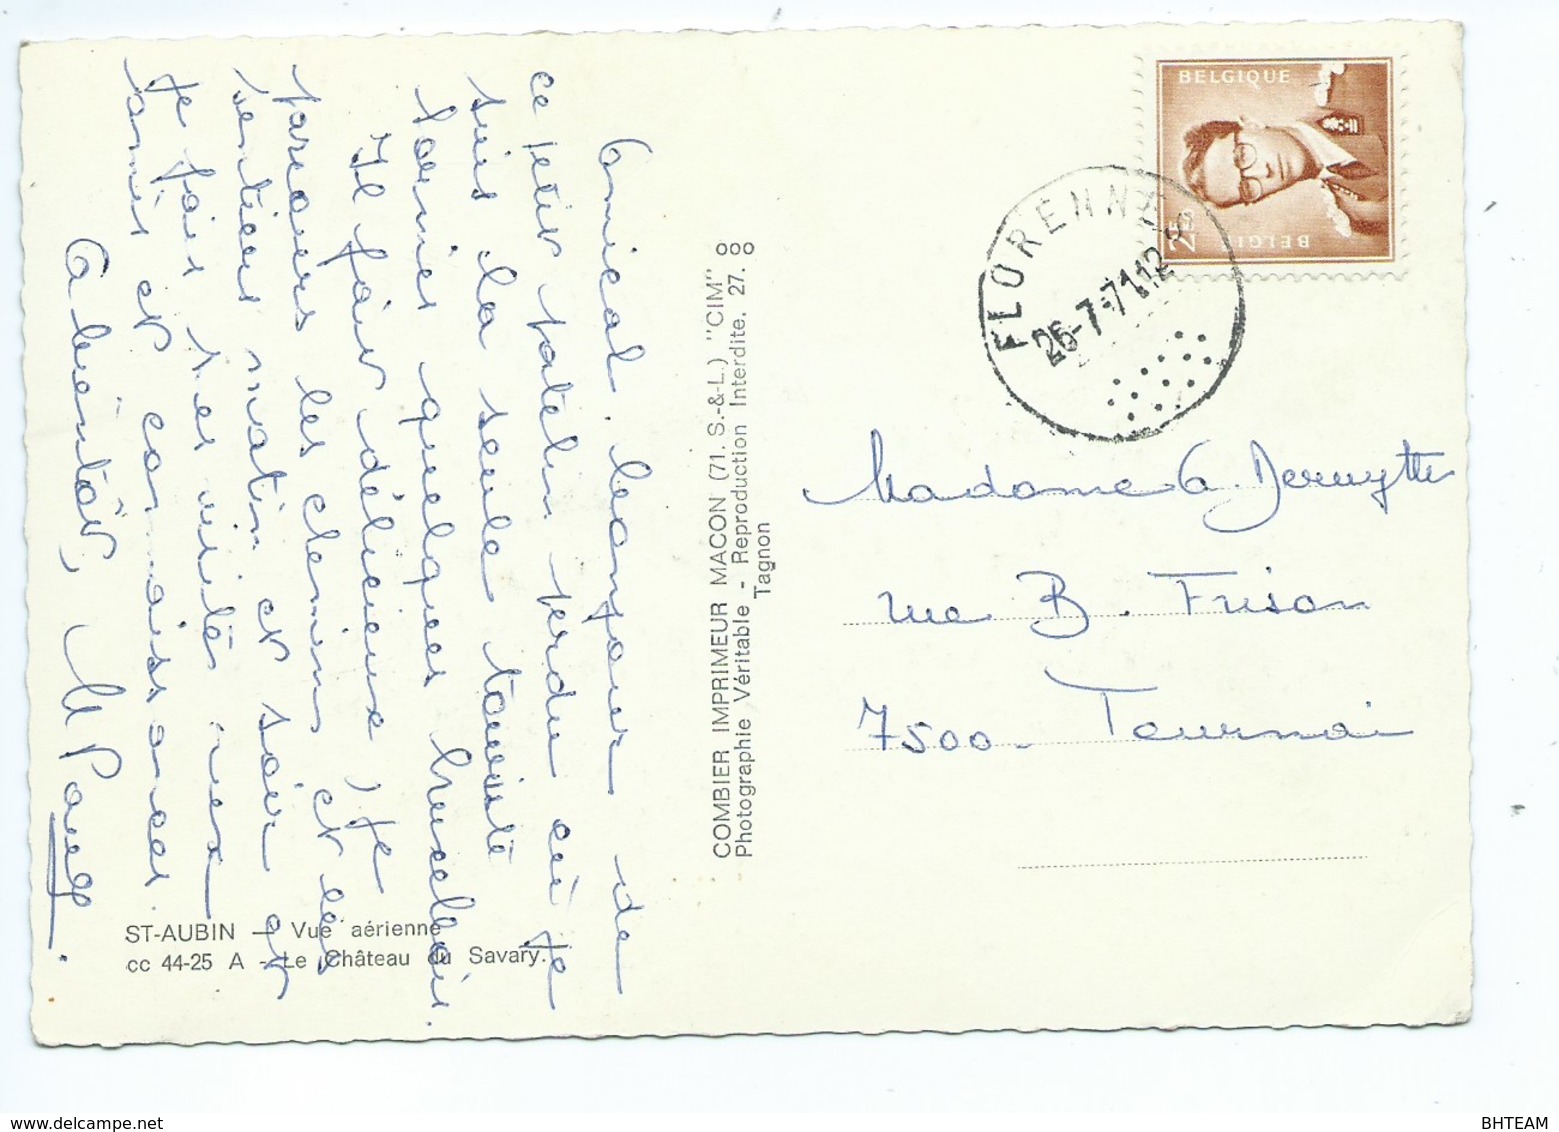 Amical bonjour de
ce petit patelin perdu où je
suis la seule touriste
parmi quelques bruxellois.
Il fait délicieux, je
parcours les chemins et les
sentiers matin et soir et
je fais des visites aux
amis et connaissances.
A bientôt,
ST-AUBIN — Vue aérienne
cc 44-25 A - Le Château du Savary.
COMBIER IMPRIMEUR MACON (71. S.-&-L.) "CIM"
Photographie Véritable - Reproduction Interdite. 27.
Tagnon
BELGIQUE
BELGIE
FLORENNES
26-7-71 12
Madame A. Deruytte
rue B. Frison
7500 - Tournai
BHTEAM